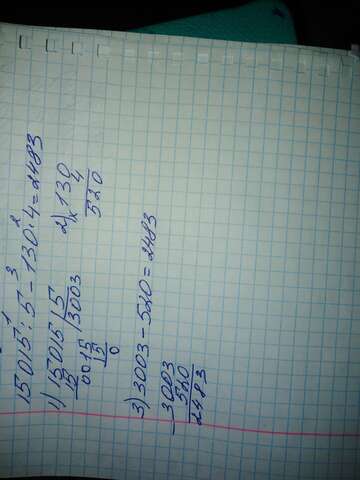 1 3 2
15015 : 5 - 130 · 4 = 2483
1) 15015 | 5 2) 130
15 3003 × 4
0015 520
15
0
3) 3003 - 520 = 2483
- 3003
520
2483